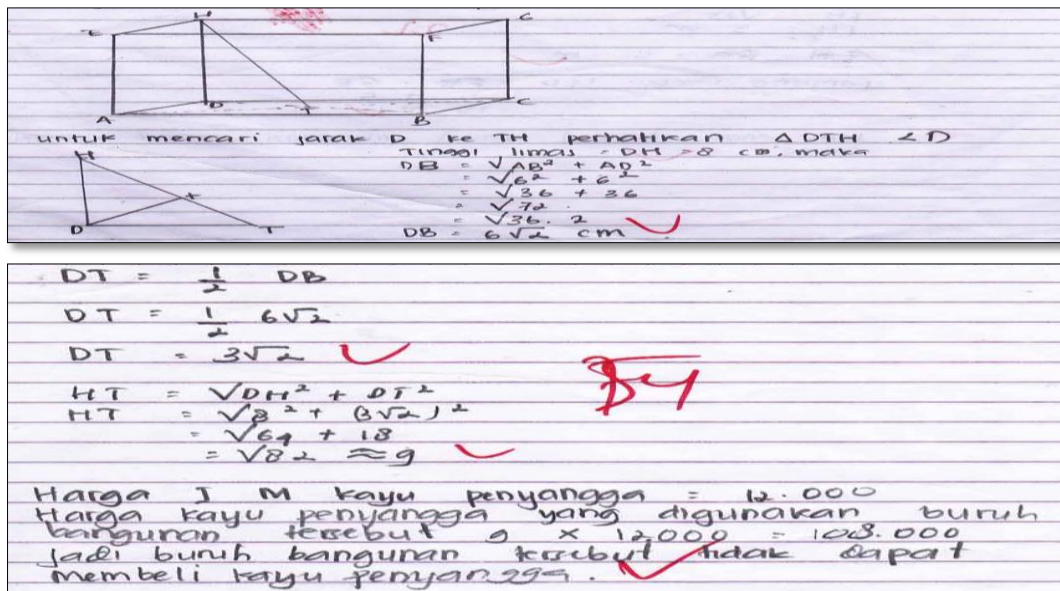 H G
E F
D C
A T B
untuk mencari jarak D ke TH perhatikan Δ DTH ∠D
Tinggi limas = DH = 8 cm, maka
H
DB = √AB² + AD²
= √6² + 6²
= √36 + 36
= √72
= √36. 2
D T
DB = 6√2 cm
DT = 1/2 DB
DT = 1/2 6√2
DT = 3√2
HT = √DH² + DT²
HT = √8² + (3√2)²
= √64 + 18
= √82 ≈ 9
Harga 1 M kayu penyangga = 12.000
Harga kayu penyangga yang digunakan buruh
bangunan tersebut 9 × 12.000 = 108.000
jadi buruh bangunan tersebut tidak dapat
membeli kayu penyangga.